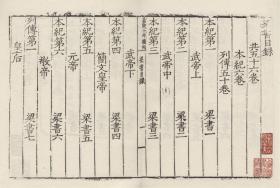 書目錄
共五十六卷
本紀六卷
列傳五十卷
本紀第一 梁書一
武帝上
本紀第二 梁書二
武帝中
本紀第三 梁書三
武帝下
本紀第四 梁書四
簡文皇帝
本紀第五 梁書五
元帝
本紀第六 梁書六
敬帝
列傳第一 梁書七
皇后